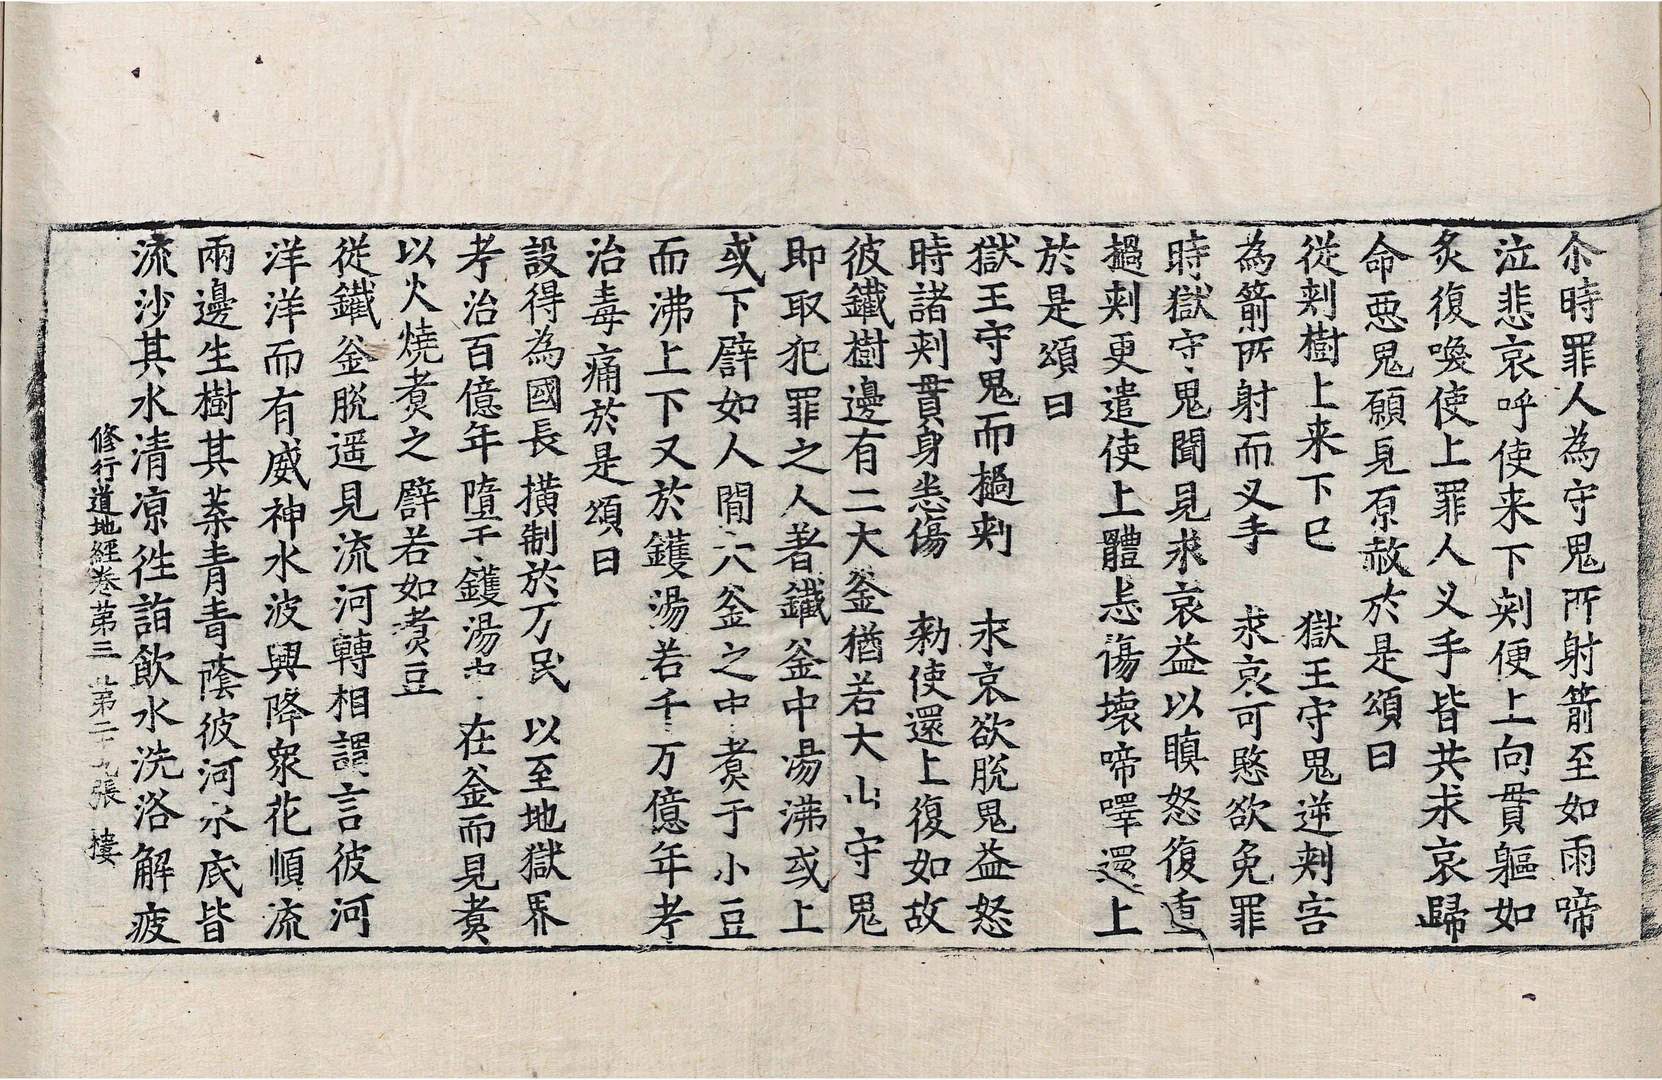 尒時罪人為守鬼所射箭至如雨啼
泣悲哀呼使来下刾便上向貫軀如
炙復喚使上罪人义手皆共求哀歸
命惡鬼願見原赦於是頌曰
從刾樹上来下已　獄王守鬼逆刾害
為箭所射而义手　求哀可愍欲免罪
時獄守鬼聞見求哀益以瞋怒復重
撾刾更遣使上體恙傷壞啼嘷還上
於是頌曰
獄王守鬼而撾刾　求哀欲脫鬼益怒
時諸刾貫身恙傷　勑使還上復如故
彼鐵樹邊有二大釜猶若大山守鬼
即取犯罪之人著鐵釜中湯沸或上
或下譬如人間六釜之中煑于小豆
而沸上下又於鑊湯若千万億年考
治毒痛於是頌曰
設得為國長撗制於万民　以至地獄界
考治百億年墮于鑊湯中　在釜而見煑
以火燒煑之譬若如煑豆
從鐵釜脫遥見流河轉相謂言彼河
洋洋而有威神水波興降衆花順流
兩邊生樹其葉青青蔭彼河水底皆
流沙其水清凉徃詣飲水洗浴解疲
修行道地經卷苐三　苐二十九張　樓